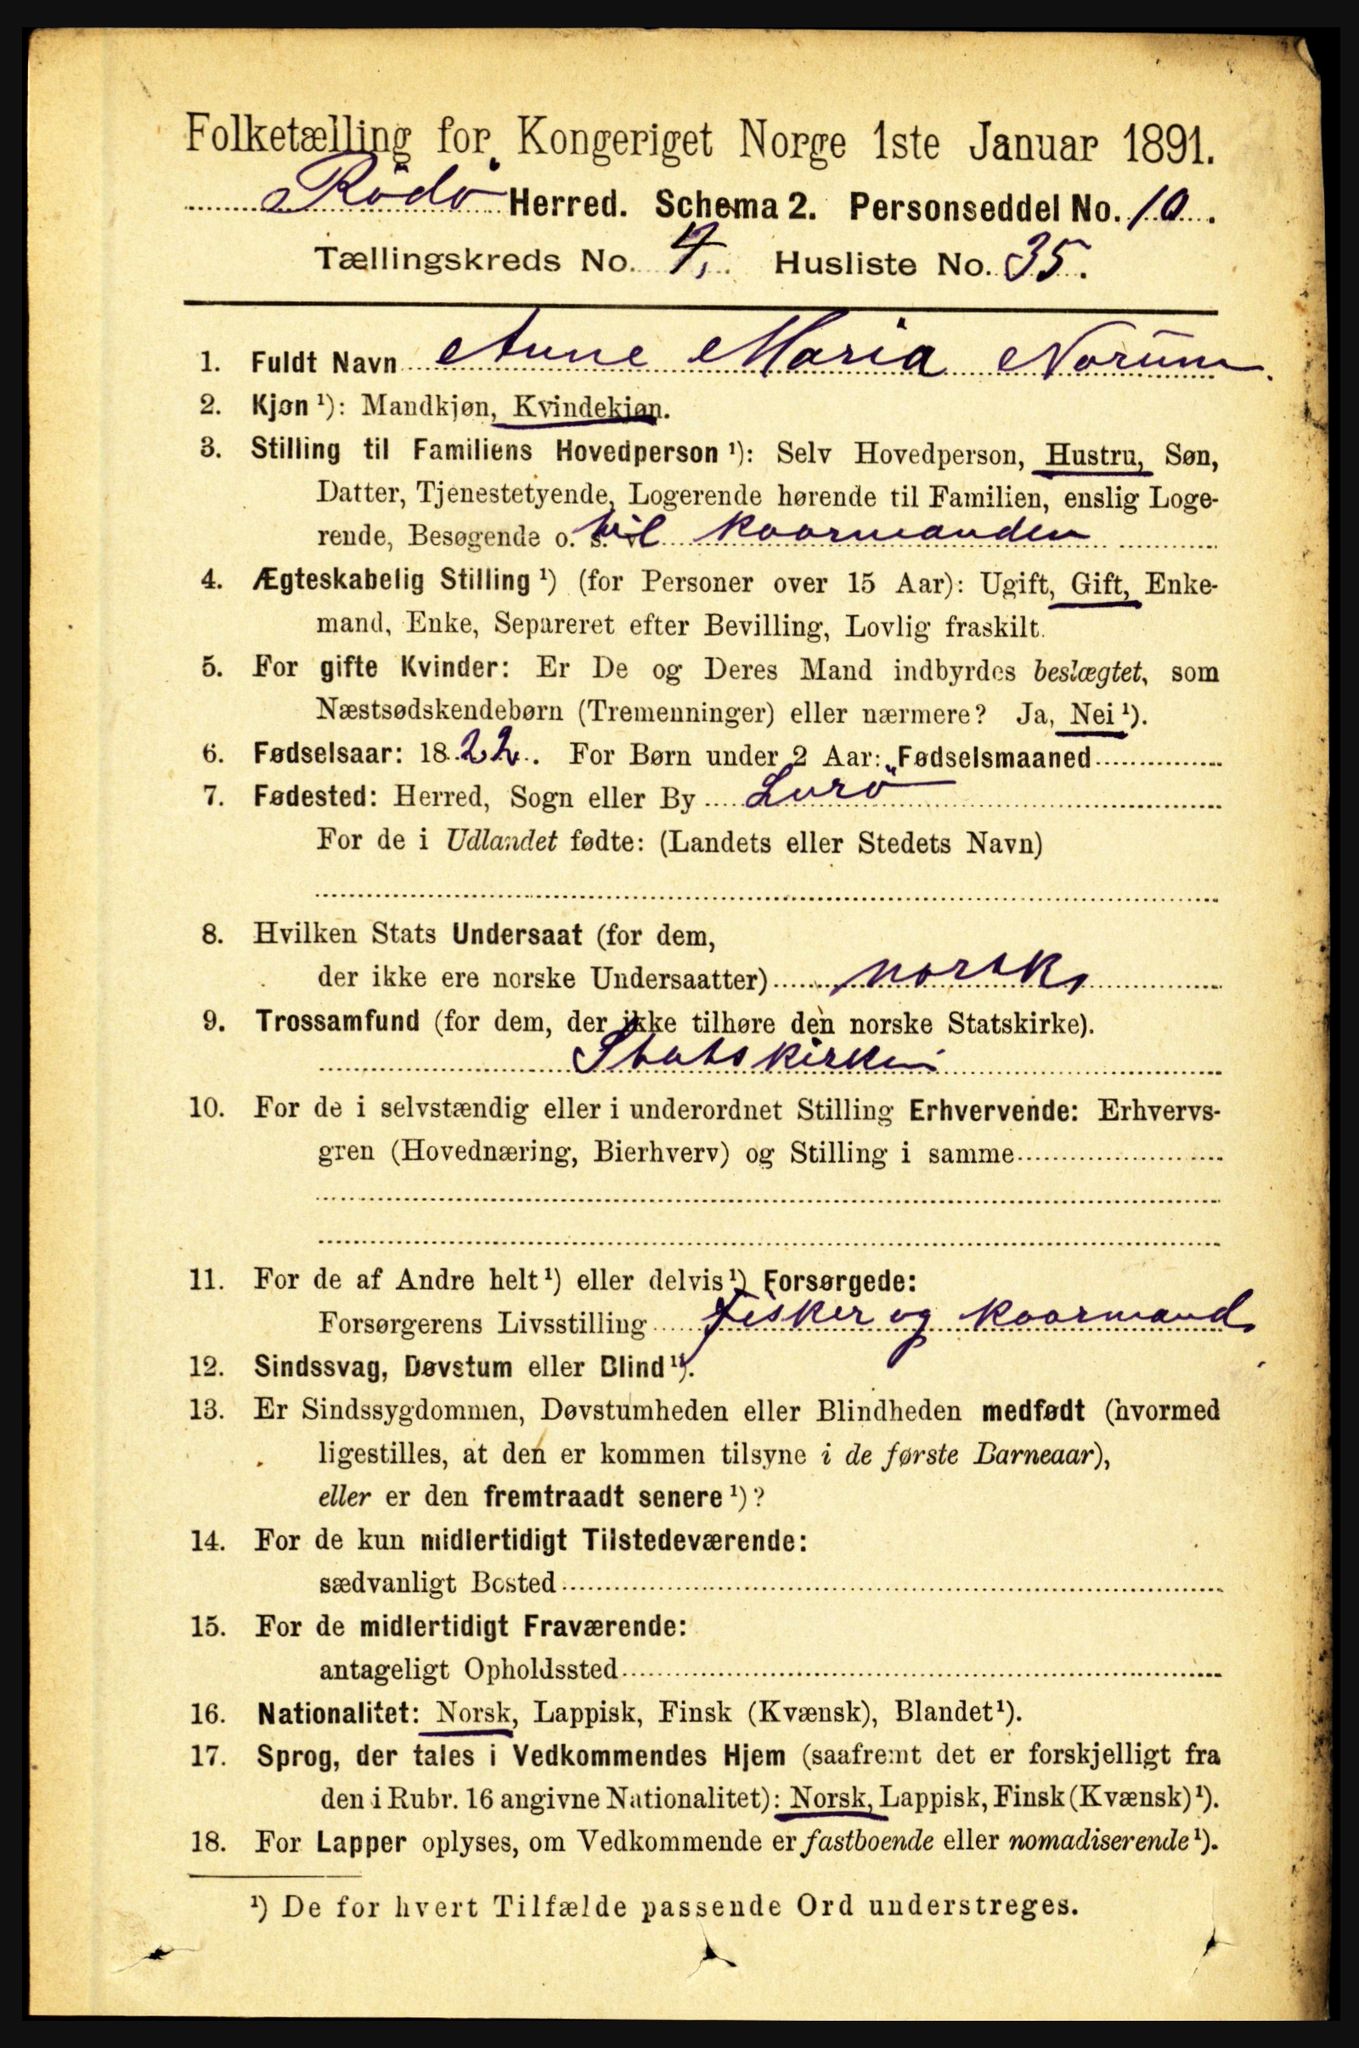 Folketælling for Kongeriget Norge 1ste Januar 1891.
Rödö Herred. Schema 2. Personseddel No. 10.
Tællingskreds No. 4. Husliste No. 35.
1. Fuldt Navn Anne Maria Norum.
2. Kjøn ¹): Mandkjøn, Kvindekjøn.
3. Stilling til Familiens Hovedperson ¹): Selv Hovedperson, Hustru, Søn,
Datter, Tjenestetyende, Logerende hørende til Familien, enslig Loge-
rende, Besøgende o. s. v. til Kaarmanden
4. Ægteskabelig Stilling ¹) (for Personer over 15 Aar): Ugift, Gift, Enke-
mand, Enke, Separeret efter Bevilling, Lovlig fraskilt.
5. For gifte Kvinder: Er De og Deres Mand indbyrdes beslægtet, som
Næstsødskendebørn (Tremenninger) eller nærmere? Ja, Nei ¹).
6. Fødselsaar: 1822. For Børn under 2 Aar: Fødselsmaaned
7. Fødested: Herred, Sogn eller By Lurö
For de i Udlandet fødte: (Landets eller Stedets Navn)
8. Hvilken Stats Undersaat (for dem,
der ikke ere norske Undersaatter) norsk
9. Trossamfund (for dem, der ikke tilhøre den norske Statskirke).
Statskirken
10. For de i selvstændig eller i underordnet Stilling Erhvervende: Erhvervs-
gren (Hovednæring, Bierhverv) og Stilling i samme
11. For de af Andre helt ¹) eller delvis ¹) Forsørgede:
Forsørgerens Livsstilling Fisker og Kaarmand
12. Sindssvag, Døvstum eller Blind ¹).
13. Er Sindssygdommen, Døvstumheden eller Blindheden medfødt (hvormed
ligestilles, at den er kommen tilsyne i de første Barneaar),
eller er den fremtraadt senere ¹)?
14. For de kun midlertidigt Tilstedeværende:
sædvanligt Bosted
15. For de midlertidigt Fraværende:
antageligt Opholdssted
16. Nationalitet: Norsk, Lappisk, Finsk (Kvænsk), Blandet ¹).
17. Sprog, der tales i Vedkommendes Hjem (saafremt det er forskjelligt fra
den i Rubr. 16 angivne Nationalitet): Norsk, Lappisk, Finsk (Kvænsk) ¹).
18. For Lapper oplyses, om Vedkommende er fastboende eller nomadiserende ¹).
¹) De for hvert Tilfælde passende Ord understreges.